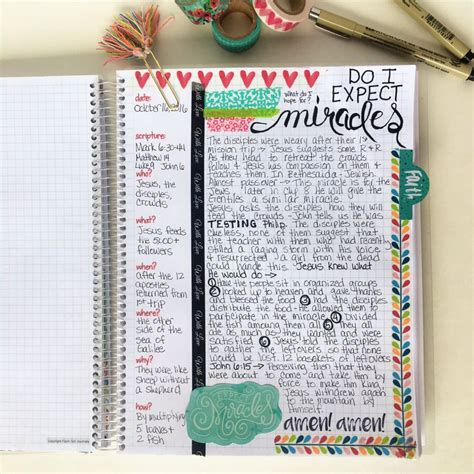 DO I
EXPECT
what do i
hope for?
miracles
date:
October 16, 2016
scripture:
Mark 6:30-44
Matthew 14
Luke 9 John 6
who?
Jesus, the
disciples,
crowds
what?
Jesus
feeds the
5,000+
followers
when?
after the 12
apostles
returned from
1st trip
where?
the other
side of the
sea of
Galilee
why?
They were like
sheep without
a shepherd
how?
By multiplying
5 loaves +
2 fish
The disciples were weary after their 1st
mission trip → Jesus suggests some R & R.
As they head to retreat the crowds
follow → Jesus has compassion on them +
teaches them. In Bethesaida - Jewish
Almost passover → This miracle is by the
Jews, later in cup 8 He will give the
Gentiles a similar miracle.
Jesus asks the disciples how they will
feed the crowds - John tells us He was
TESTING Philip. The disciples were
clueless, none of them suggest that
the teacher with them, what had recently
stilled a raging storm with His voice
& resurrected a girl from the dead
could handle this. "Jesus knew what
He would do →
① the people sit in organized groups
② looked up to heaven and gave thanks
and blessed the food ③ the disciples
distribute the food - he allowed them to
participate in the miracle ④ divided the
fish among them all ⑤ They all
ate as much as they wanted and were
satisfied ⑥ Jesus told the disciples
to gather the leftovers so that none
could be lost. 12 baskets of leftovers
John 6:15 → Perceiving then that they
were about to come and take him by
force to make him king,
Jesus withdrew again
to the mountain by
himself.
Faith
With Love
Miracles
amen! amen!